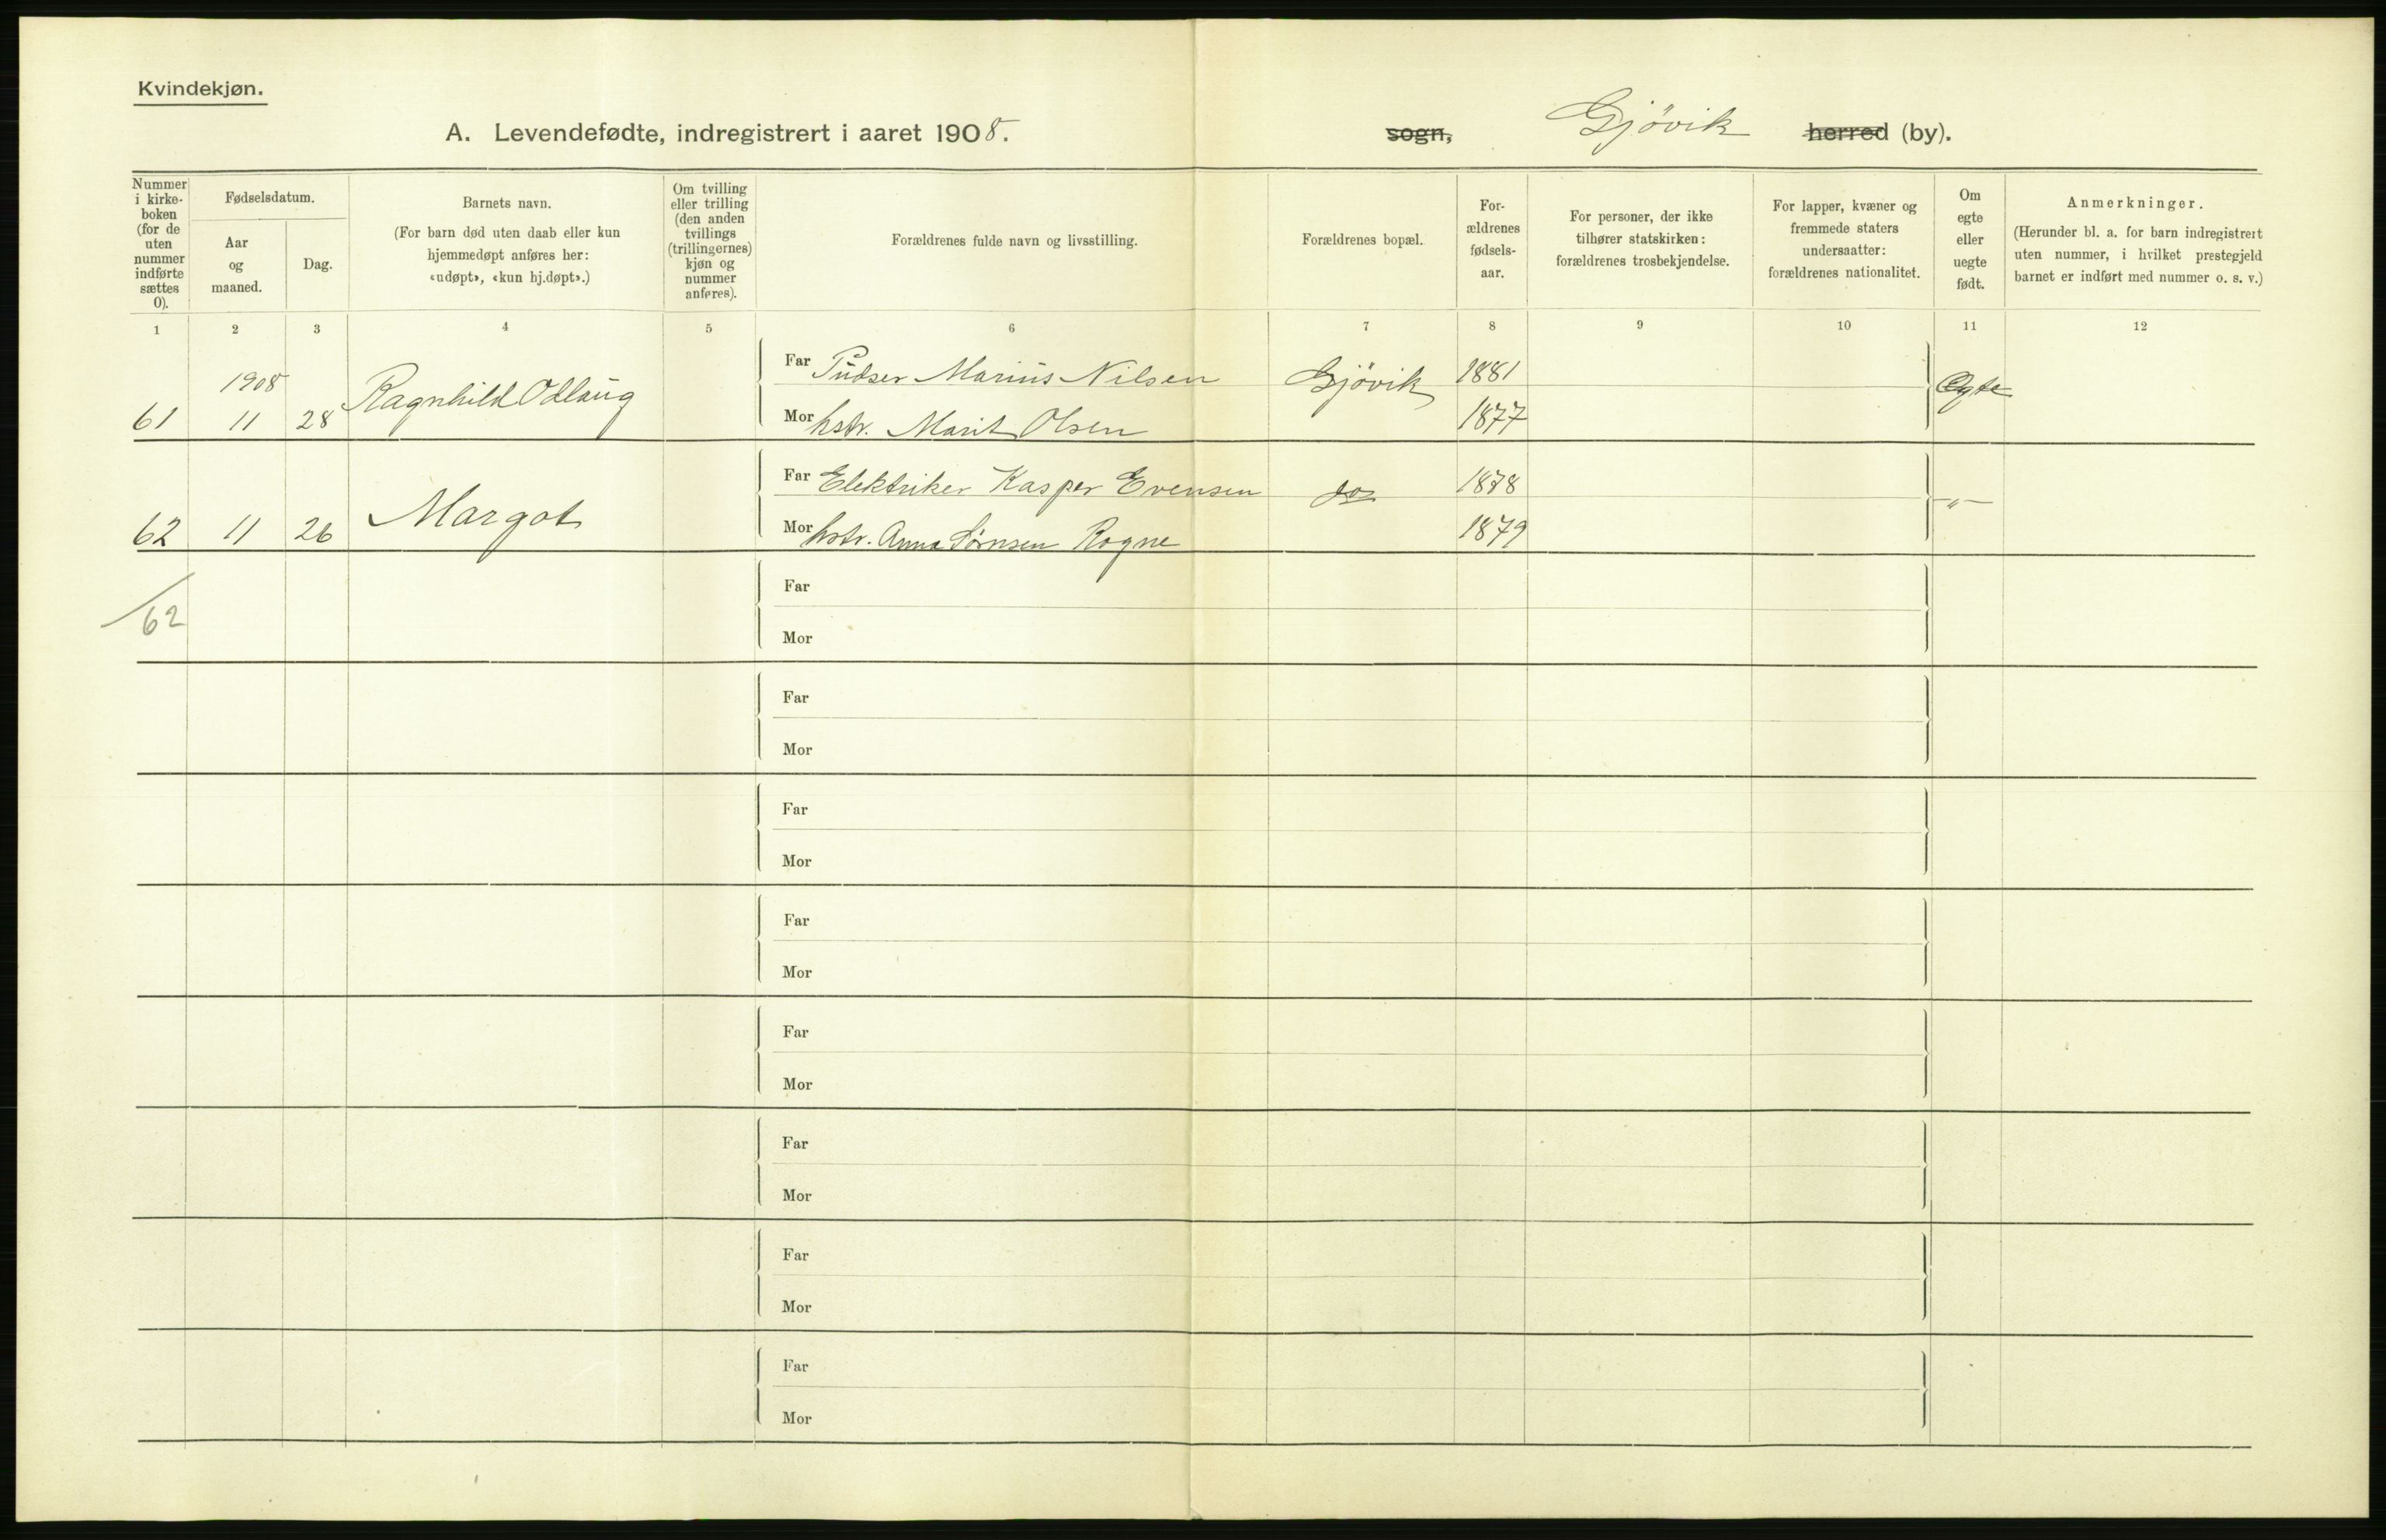 Kvindekjøn.
A. Levendefødte, indregistrert i aaret 1908.
sogn, Gjövik herred (by).
Nummer i kirke- boken (for de uten nummer indførte sættes 0).
Fødselsdatum.
Aar og maaned.
Dag.
Barnets navn.
(For barn død uten daab eller kun
hjemmedøpt anføres her:
«udøpt», «kun hj.døpt».)
Om tvilling eller trilling (den anden tvillings (trillingernes) kjøn og nummer anføres).
Forældrenes fulde navn og livsstilling.
Forældrenes bopæl.
For- ældrenes fødsels- aar.
For personer, der ikke
tilhører statskirken:
forældrenes trosbekjendelse.
For lapper, kvæner og
fremmede staters
undersaatter:
forældrenes nationalitet.
Om egte eller uegte født.
Anmerkninger.
(Herunder bl. a. for barn indregistrert
uten nummer, i hvilket prestegjeld
barnet er indført med nummer o. s. v.)
1 2 3 4 5 6 7 8 9 10 11 12
1908
Far Pudser Marius Nilsen Gjövik 1881 Egte
61 11 28 Ragnhild Odlaug
Mor hstr. Marit Olsen 1877
Far Elektriker Kasper Evensen do 1878 -"-
62 11 26 Margot
Mor hstr. Anna Sørnsen Rogne 1879
Far
62
Mor
Far
Mor
Far
Mor
Far
Mor
Far
Mor
Far
Mor
Far
Mor
Far
Mor